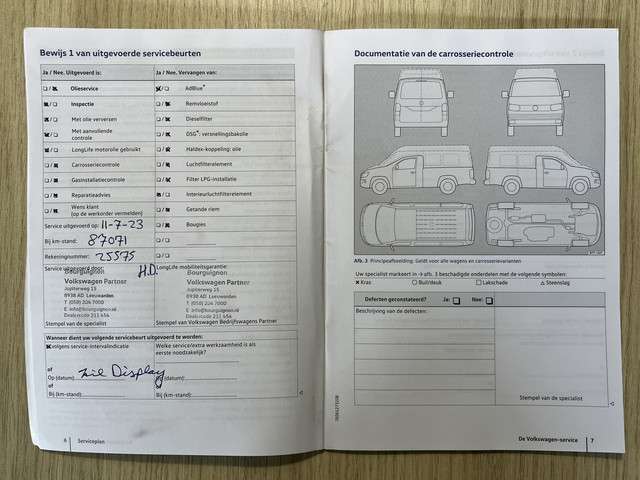 Bewijs 1 van uitgevoerde servicebeurten
Ja / Nee. Uitgevoerd is:
Ja / Nee. Vervangen van:
Olieservice
AdBlue®
Inspectie
Remvloeistof
Met olie verversen
Dieselfilter
Met aanvullende controle
DSG®: versnellingsbakolie
LongLife motorolie gebruikt
Haldex-koppeling: olie
Carrosseriecontrole
Luchtfilterelement
Gasinstallatiecontrole
Filter LPG-installatie
Reparatieadvies
Interieurluchtfilterelement
Wens klant
(op de werkorder vermelden)
Getande riem
Service uitgevoerd op: 11-7-23
Bougies
Bij km-stand: 87071
Rekeningnummer: 25575
Service uitgevoerd door:
H.D.
LongLife mobiliteitsgarantie:
Bourguignon
Volkswagen Partner
Jupiterweg 15
8938 AD Leeuwarden
T (058) 204 7000
E info@bourguignon.nl
Dealercode 211 454
Stempel van de specialist
Bourguignon
Volkswagen Partner
Jupiterweg 15
8938 AD Leeuwarden
T (058) 204 7000
E info@bourguignon.nl
Dealercode 211 454
Stempel van Volkswagen Bedrijfswagens Partner
Wanneer dient uw volgende servicebeurt uitgevoerd te worden:
volgens service-intervalindicatie
Welke service/extra werkzaamheid is als eerste noodzakelijk?
of
Op (datum): zie Display
Op (datum):
of
Bij (km-stand):
Bij (km-stand):
6 Serviceplan
Documentatie van de carrosseriecontrole
Afb. 3 Principeafbeelding: Geldt voor alle wagens en carrosserievarianten
Uw specialist markeert in → afb. 3 beschadigde onderdelen met de volgende symbolen:
Kras
Buil/deuk
Lakschade
Steenslag
Defecten geconstateerd? Ja: Nee:
Beschrijving van de defecten:
Stempel van de specialist
De Volkswagen-service 7